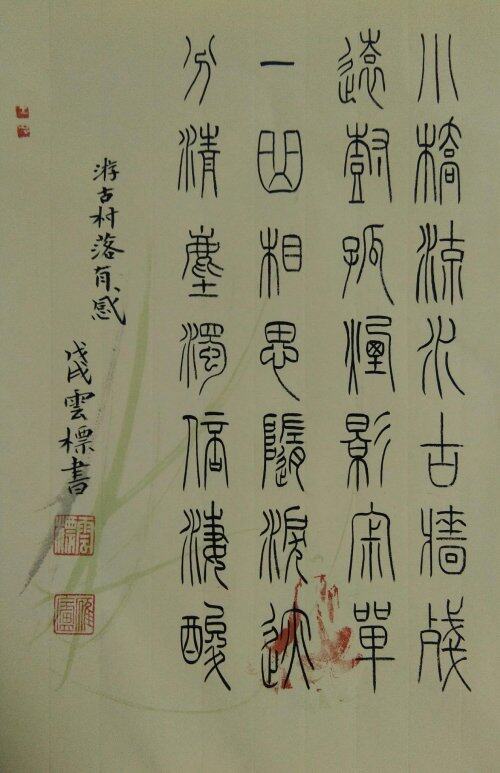 小橋流水古牆殘
遠樹孤煙影單
一曲相思隨淚
分清塵濁倍淒酸
游古村落有感
戊戌雲標書
雲標